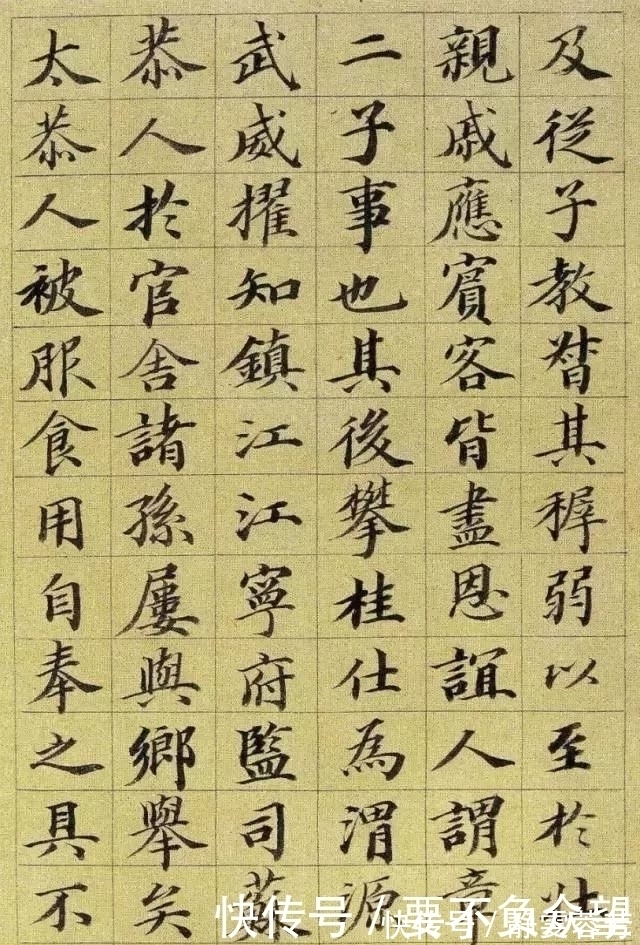 及從子教督其稺弱以至於
親戚應賓客皆盡恩誼人謂
二子事也其後攀桂仕為渭源
武威擢知鎮江江寧府監司蘇
恭人於官舍諸孫屢與鄉舉矣
太恭人被服食用自奉之具不
快传号 /
快传号 /